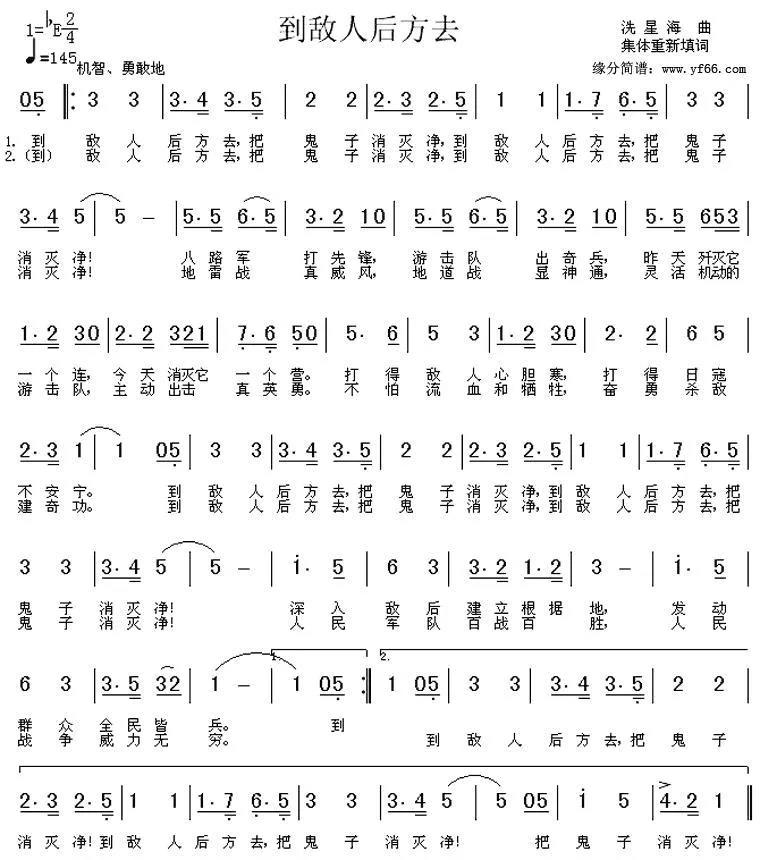 到敌人后方去
洗星海 曲
集体重新填词
缘分简谱：www.yf66.com
1=♭E 2/4
♩=145
机智、勇敢地
05 ‖: 3 3 | 3· 4 3· 5 | 2 2 | 2· 3 2· 5 | 1 1 | 1· 7 6· 5 | 3 3 |
1. 到 敌 人 后 方 去,把 鬼 子 消 灭 净,到 敌 人 后 方 去,把 鬼 子
2.(到) 敌 人 后 方 去,把 鬼 子 消 灭 净,到 敌 人 后 方 去,把 鬼 子
3· 4 5 | 5 – | 5· 5 6· 5 | 3· 2 10 | 5· 5 6· 5 | 3· 2 10 | 5· 5 653 |
消 灭 净! 八 路 军 打 先 锋, 游 击 队 出 奇 兵, 昨 天 歼灭它
消 灭 净! 地 雷 战 真 威 风, 地 道 战 显 神 通, 灵 活 机动的
1· 2 30 | 2· 2 321 | 7· 6 50 | 5· 6 | 5 3 | 1· 2 30 | 2· 2 | 6 5 |
一 个 连, 今 天 消灭它 一 个 营。 打 得 敌 人 心 胆 寒, 打 得 日 寇
游 击 队, 主 动 出 击 真 英 勇。 不 怕 流 血 和 牺 牲, 奋 勇 杀 敌
2· 3 1 | 1 05 | 3 3 | 3· 4 3· 5 | 2 2 | 2· 3 2· 5 | 1 1 | 1· 7 6· 5 |
不 安 宁。 到 敌 人 后 方 去,把 鬼 子 消 灭 净,到 敌 人 后 方 去,把
建 奇 功。 到 敌 人 后 方 去,把 鬼 子 消 灭 净,到 敌 人 后 方 去,把
3 3 | 3· 4 5 | 5 – | i· 5 | 6 3 | 3· 2 1· 2 | 3 – | i· 5 |
鬼 子 消 灭 净! 深 入 敌 后 建 立 根 据 地, 发 动
鬼 子 消 灭 净! 人 民 军 队 百 战 百 胜, 人 民
1. 2.
6 3 | 3· 5 32 | 1 – | 1 05 :‖ 1 05 | 3 3 | 3· 4 3· 5 | 2 2 |
群 众 全 民 皆 兵。 到
战 争 威 力 无 穷。 到 敌 人 后 方 去,把 鬼 子
2· 3 2· 5 | 1 1 | 1· 7 6· 5 | 3 3 | 3· 4 5 | 5 05 | i 5 | 4· 2 1 ‖
消 灭 净!到 敌 人 后 方 去,把 鬼 子 消 灭 净! 把 鬼 子 消 灭 净!